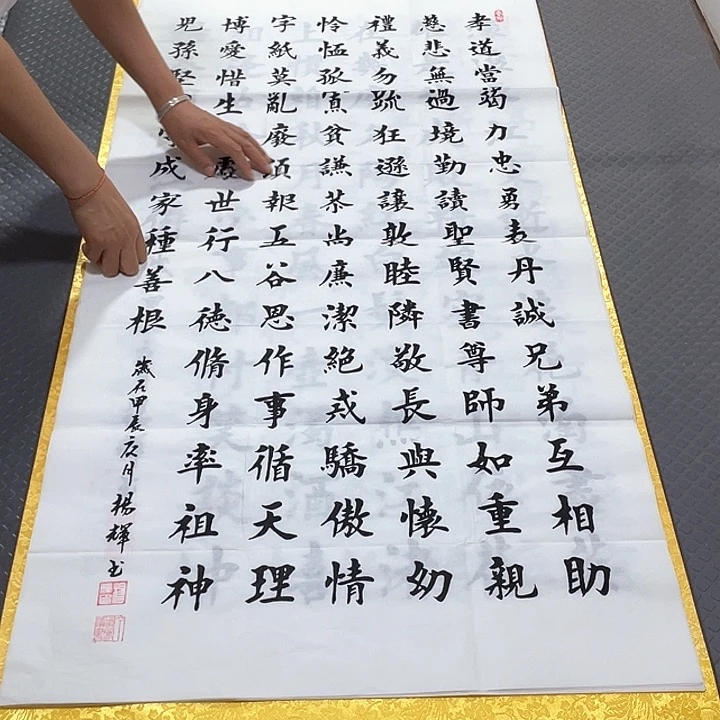 孝道當竭力忠勇表丹誠兄弟互相助
慈悲無過境勤讀聖賢書尊師如重親
禮義勿疏狂遜讓敦睦隣敬長與懷幼
怜恤孤寡貧謙恭尚廉潔絕戒驕傲情
字紙莫亂廢須報五谷恩作事循天理
博愛惜生處世行八德脩身率祖神
兒孫堅成家種善根
歲在甲辰月楊輝书